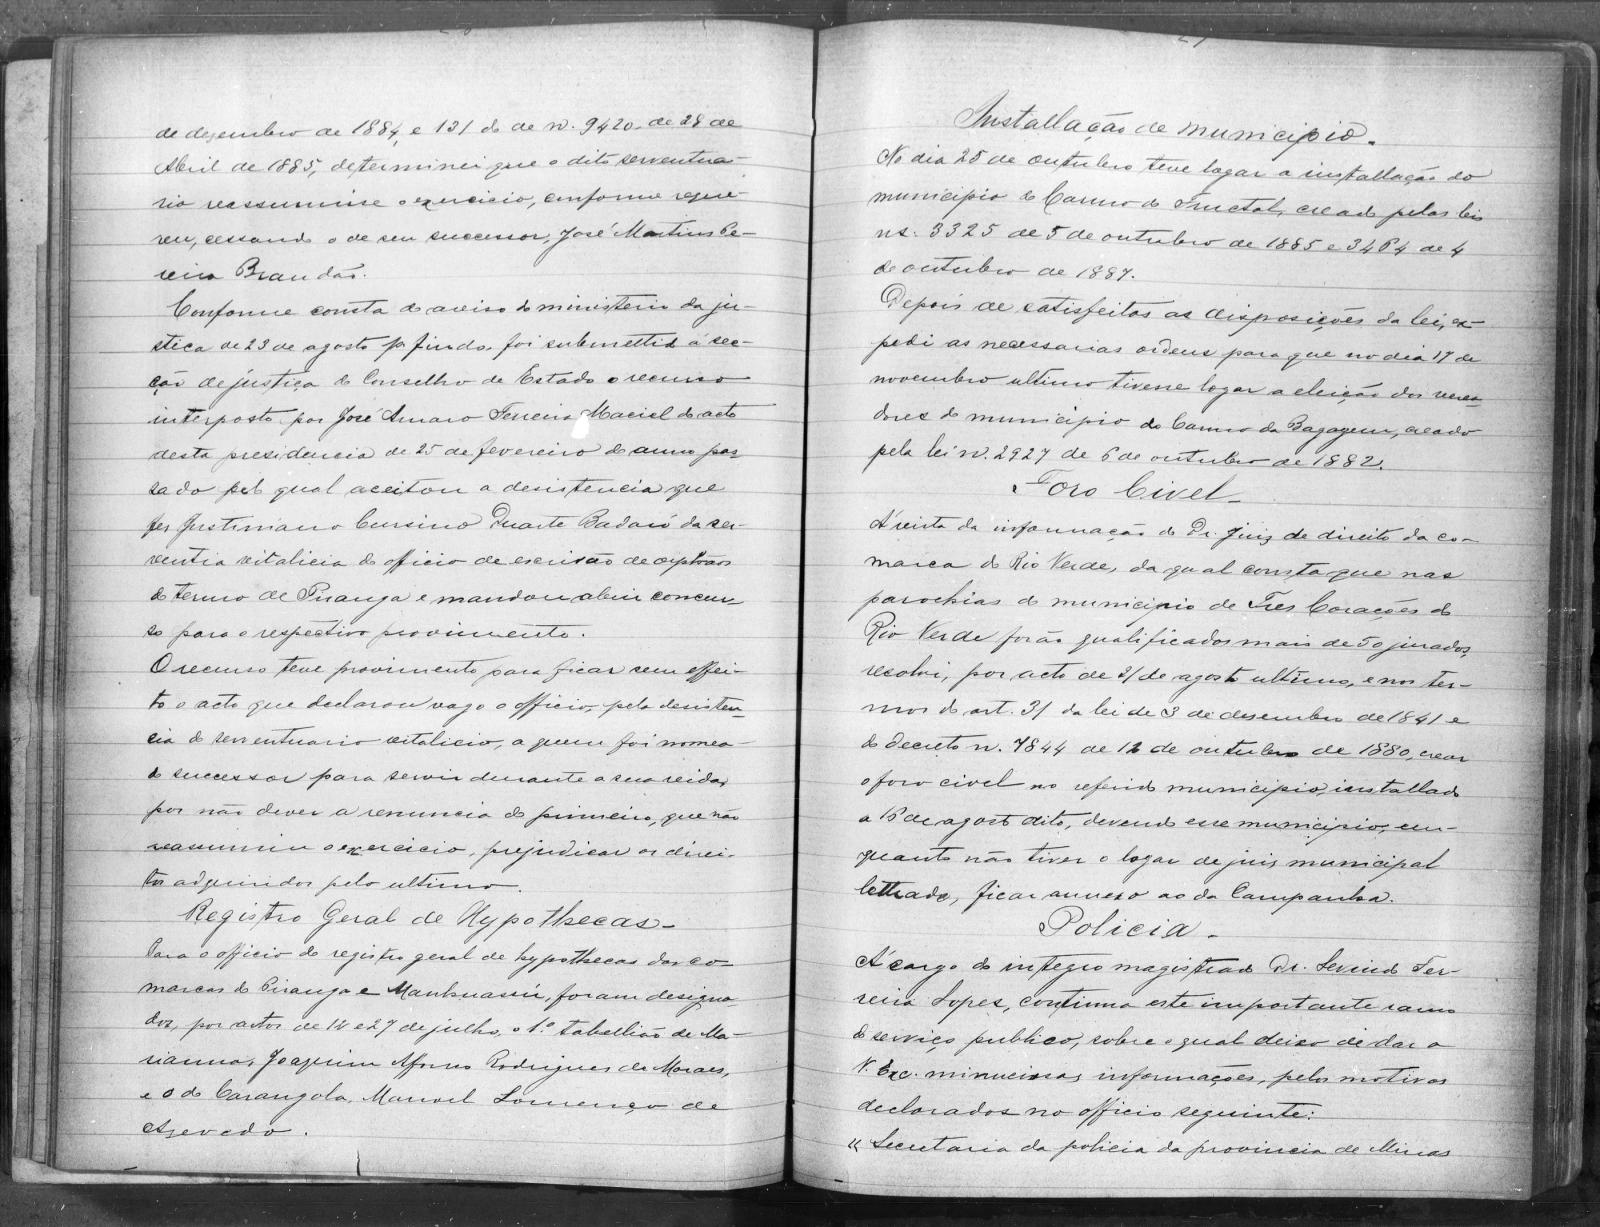 de dezembro de 1884, e 131 do de n. 9420, de 28 de
Abril de 1885, determinei que o dito serventua-
rio reassumisse o exercicio, conforme reque-
reu, cessando o de seu successor, José Martins Pe-
reira Brandão.
Conforme consta do aviso do ministerio da jus-
tiça de 23 de agosto p. findo, foi submettido á sec-
ção de justiça do Conselho de Estado o recurso
interposto por José Amaro Ferreira Maciel do acto
desta presidencia de 25 de fevereiro do anno pas-
sado pelo qual aceitou a desistencia que
fez Justiniano Cursino Duarte Badaró da ser-
ventia vitalicia do officio de escrivão de orphãos
do termo de Piranga e mandou abrir concur-
so para o respectivo provimento.
O recurso teve provimento para ficar sem effei-
to o acto que declarou vago o officio, pela desisten-
cia do serventuario vitalicio, a quem foi nomea-
do successor para servir durante a sua vida,
por não dever a renuncia do primeiro, que não
reassumiu o exercicio, prejudicar os direi-
tos adquiridos pelo ultimo.
Registro Geral de Hypothecas-
Para o officio do registro geral de hypothecas das co-
marcas do Piranga e Manhuassú, foram designa
dos, por actos de 12 e 27 de julho, o 1.º tabellião de Ma-
rianna, Joaquim Affonso Rodrigues de Moraes,
e o do Carangola, Manoel Lourenço de
Azevedo.
Installação de municipio.
No dia 25 de outubro teve logar a installação do
municipio do Carmo do Fructal, creado pelas leis
ns. 3325 de 5 de outubro de 1885 e 3464 de 4
de outubro de 1887.
Depois de satisfeitas as disposições da lei, ex-
pedi as necessarias ordens para que no dia 17 de
novembro ultimo tivesse logar a eleição dos verea-
dores do municipio do Carmo da Bagagem, creado
pela lei n. 2927 de 6 de outubro de 1882.
Foro Civel-
A' vista da informação do Dr. juiz de direito da co-
marca do Rio Verde, da qual consta que nas
parochias do municipio de Tres Corações do
Rio Verde forão qualificados mais de 50 jurados,
resolvi, por acto de 31 de agosto ultimo, e nos ter-
mos do art. 31 da lei de 3 de dezembro de 1841 e
do decreto n. 7844 de 12 de outubro de 1880, crear
o foro civel no referido municipio, installado
a 16 de agosto dito, devendo esse municipio, em-
quanto não tiver o logar de juiz municipal
lettrado, ficar annexo ao da Campanha.
Policia-
A' cargo do integro magistrado Dr. Levindo Fer-
reira Lopes, continua este importante ramo
do serviço publico, sobre o qual deixo de dar a
V. Exc. minuciosas informações, pelos motivos
declarados no officio seguinte:
« Secretaria da policia da provincia de Minas